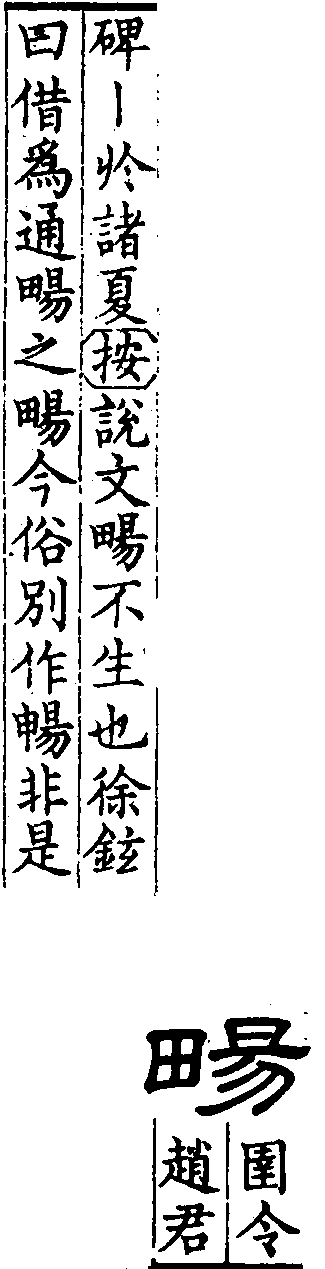 畼
圉令
趙君
碑丨於諸夏按說文畼不生也徐鉉
曰借爲通畼之畼今俗別作暢非是